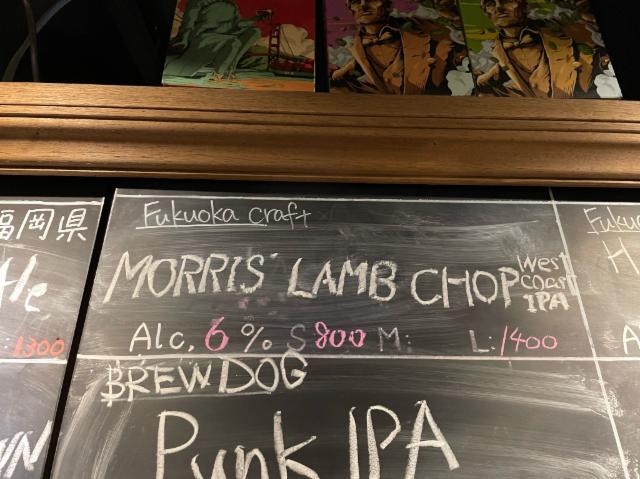 福岡県
:1300
Fukuoka craft
MORRIS' LAMB CHOP West Coast IPA
Alc. 6% S 800 M: L:1400
BREWDOG
Punk IPA